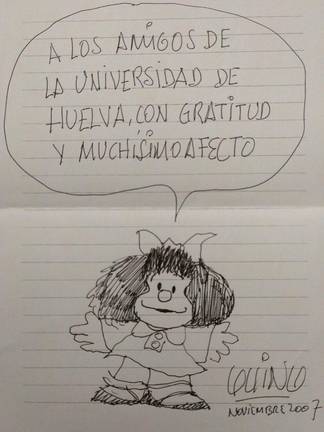 A LOS AMIGOS DE
LA UNIVERSIDAD DE
HUELVA, CON GRATITUD
Y MUCHÍSIMO AFECTO
QUINO
NOVIEMBRE 2007